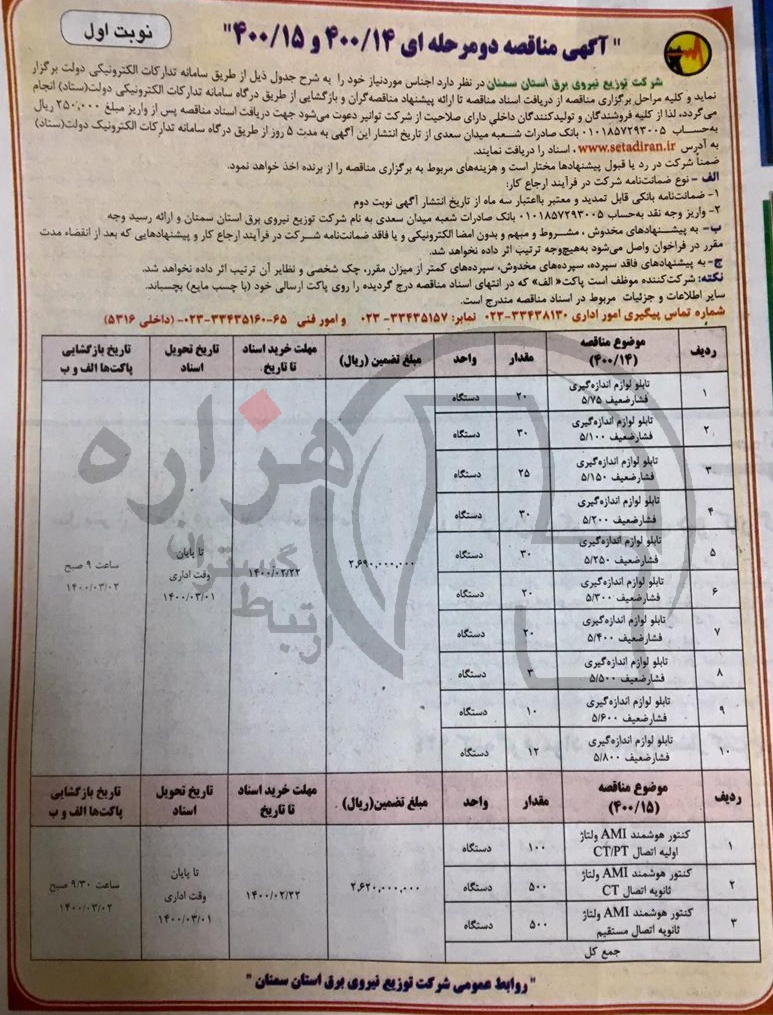 نوبت اول
" آگهی مناقصه دومرحله ای ۴۰۰/۱۴ و ۴۰۰/۱۵"
شرکت توزیع نیروی برق استان سمنان در نظر دارد اجناس موردنیاز خود را به شرح جدول ذیل از طریق سامانه تدارکات الکترونیکی دولت برگزار
نماید و کلیه مراحل برگزاری مناقصه از دریافت اسناد مناقصه تا ارائه پیشنهاد مناقصه‌گران و بازگشایی از طریق درگاه سامانه تدارکات الکترونیکی دولت(ستاد) انجام
می‌گردد، لذا از کلیه فروشندگان و تولیدکنندگان داخلی دارای صلاحیت از شرکت توانیر دعوت می‌شود جهت دریافت اسناد مناقصه پس از واریز مبلغ ۲۵۰,۰۰۰ ریال
به‌حساب ۰۱۰۱۸۵۷۲۹۳۰۰۵ بانک صادرات شعبه میدان سعدی از تاریخ انتشار این آگهی به مدت ۵ روز از طریق درگاه سامانه تدارکات الکترونیک دولت(ستاد)
به آدرس www.setadiran.ir ، اسناد را دریافت نمایند.
ضمناً شرکت در رد یا قبول پیشنهادها مختار است و هزینه‌های مربوط به برگزاری مناقصه را از برنده اخذ خواهد نمود.
الف - نوع ضمانت‌نامه شرکت در فرآیند ارجاع کار:
۱- ضمانت‌نامه بانکی قابل تمدید و معتبر بااعتبار سه ماه از تاریخ انتشار آگهی نوبت دوم
۲- واریز وجه نقد به‌حساب ۰۱۰۱۸۵۷۲۹۳۰۰۵ بانک صادرات شعبه میدان سعدی به نام شرکت توزیع نیروی برق استان سمنان و ارائه رسید وجه
ب- به پیشنهادهای مخدوش ، مشروط و مبهم و بدون امضا الکترونیکی و یا فاقد ضمانت‌نامه شرکت در فرآیند ارجاع کار و پیشنهادهایی که بعد از انقضاء مدت
مقرر در فراخوان واصل می‌شود به‌هیچ‌وجه ترتیب اثر داده نخواهد شد.
ج- به پیشنهادهای فاقد سپرده، سپرده‌های مخدوش، سپرده‌های کمتر از میزان مقرر، چک شخصی و نظایر آن ترتیب اثر داده نخواهد شد.
نکته: شرکت‌کننده موظف است پاکت« الف» که در انتهای اسناد مناقصه درج گردیده را روی پاکت ارسالی خود (با چسب مایع) بچسباند.
سایر اطلاعات و جزئیات مربوط در اسناد مناقصه مندرج است.
شماره تماس پیگیری امور اداری ۳۳۴۳۸۱۳۰-۰۲۳ نمابر: ۳۳۴۳۵۱۵۷- ۰۲۳ و امور فنی ۶۵-۳۳۴۳۵۱۶۰-۰۲۳- (داخلی ۵۳۱۶)
ردیف موضوع مناقصه (۴۰۰/۱۴) مقدار واحد مبلغ تضمین (ریال) مهلت خرید اسناد تا تاریخ تاریخ تحویل اسناد تاریخ بازگشایی پاکت‌ها الف و ب
۱ تابلو لوازم اندازه‌گیری فشارضعیف ۵/۷۵ ۲۰ دستگاه
۲ تابلو لوازم اندازه‌گیری فشارضعیف ۵/۱۰۰ ۳۰ دستگاه
۳ تابلو لوازم اندازه‌گیری فشارضعیف ۵/۱۵۰ ۲۵ دستگاه
۴ تابلو لوازم اندازه‌گیری فشارضعیف ۵/۲۰۰ ۳۰ دستگاه
۵ تابلو لوازم اندازه‌گیری فشارضعیف ۵/۲۵۰ ۳۰ دستگاه
۲,۶۹۰,۰۰۰,۰۰۰ ۱۴۰۰/۰۲/۲۲ تا پایان وقت اداری ۱۴۰۰/۰۳/۰۱ ساعت ۹ صبح ۱۴۰۰/۰۳/۰۲
۶ تابلو لوازم اندازه‌گیری فشارضعیف ۵/۳۰۰ ۲۰ دستگاه
۷ تابلو لوازم اندازه‌گیری فشارضعیف ۵/۴۰۰ ۲۰ دستگاه
۸ تابلو لوازم اندازه‌گیری فشارضعیف ۵/۵۰۰ ۳ دستگاه
۹ تابلو لوازم اندازه‌گیری فشارضعیف ۵/۶۰۰ ۱۰ دستگاه
۱۰ تابلو لوازم اندازه‌گیری فشارضعیف ۵/۸۰۰ ۱۲ دستگاه
ردیف موضوع مناقصه (۴۰۰/۱۵) مقدار واحد مبلغ تضمین(ریال) مهلت خرید اسناد تا تاریخ تاریخ تحویل اسناد تاریخ بازگشایی پاکت‌ها الف و ب
۱ کنتور هوشمند AMI ولتاژ اولیه اتصال CT/PT ۱۰۰ دستگاه
۲ کنتور هوشمند AMI ولتاژ ثانویه اتصال CT ۵۰۰ دستگاه ۲,۶۲۰,۰۰۰,۰۰۰ ۱۴۰۰/۰۲/۲۲ تا پایان وقت اداری ۱۴۰۰/۰۳/۰۱ ساعت ۹/۳۰ صبح ۱۴۰۰/۰۳/۰۲
۳ کنتور هوشمند AMI ولتاژ ثانویه اتصال مستقیم ۵۰۰ دستگاه
جمع کل
" روابط عمومی شرکت توزیع نیروی برق استان سمنان "
هزاره
گستران
ارتباط